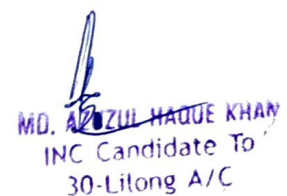 MD. AZIZUL HAQUE KHAN
INC Candidate To
30-Lilong A/C